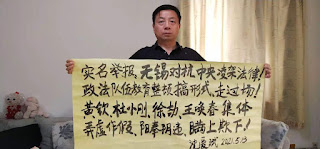 实名举报，无锡对抗中央凌架法律！
政法队伍教育整顿搞形式、走过场！
黄钦、杜小刚、徐劼、王唤春集体
弄虚作假、阳奉阴违、瞒上欺下！
沈爱斌 2021.5.13